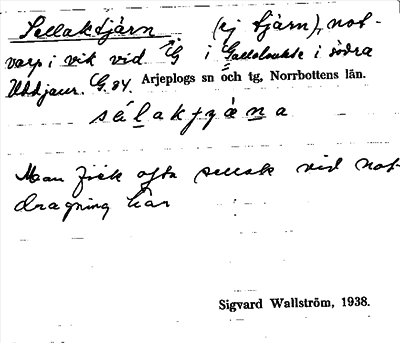 Sellaktjärn (ej tjärn), not-
varp i vik vid G i Galtolukte i södra
Uddjaur. G. 84. Arjeplogs sn och tg, Norrbottens län.
Man fick ofta sellak vid not-
dragning här
Sigvard Wallström, 1938.